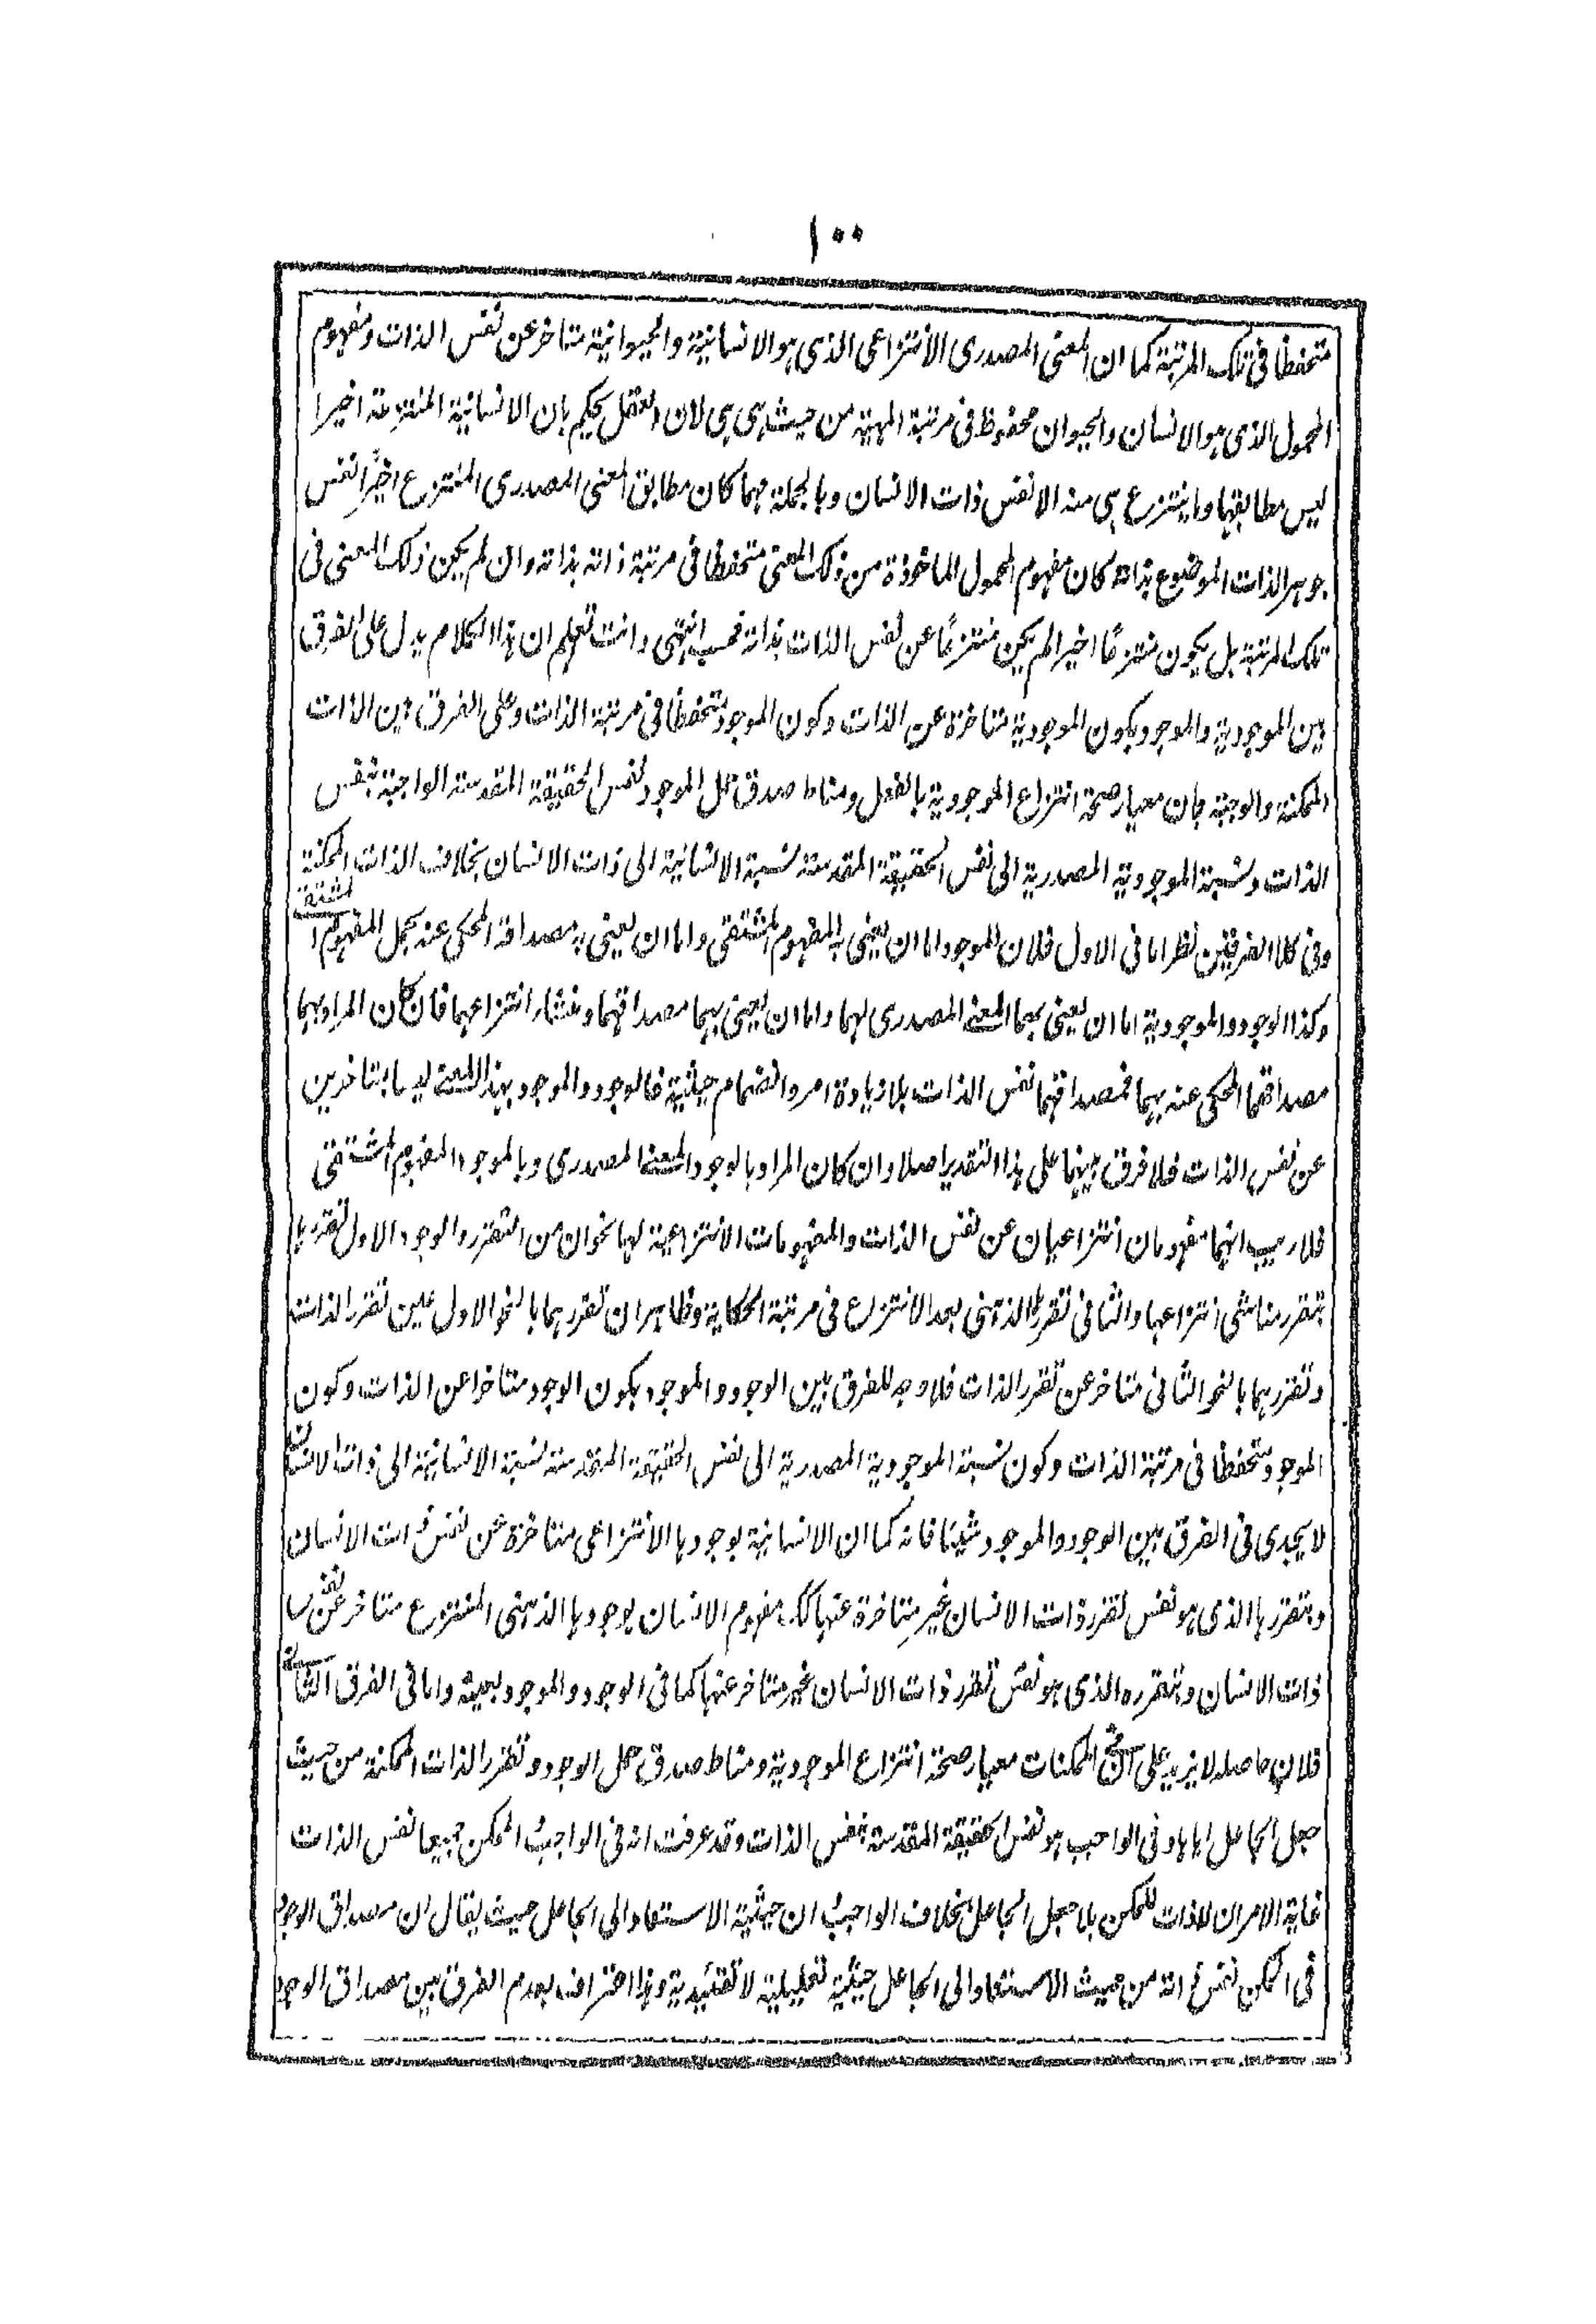 ١٠٠
متحفظا فى تلك المرتبة كما ان المعنى المصدرى الانتزاعى الذى هو الانسانية والحيوانية متاخر عن نفس الذات ومفهوم
المحمول الذى هو الانسان والحيوان محفوظ فى مرتبة المهية من حيث هى هى لان العقل يحكم بان الانسانية المنتزعة اخيرا
ليس مطابقها وما ينتزع هى منه الا نفس ذات الانسان وبالجملة مهما كان مطابق المعنى المصدرى المنتزع اخيرًا نفس
جوهر الذات الموضوع بذاته كان مفهوم المحمول الماخوذة من ذلك المعنى متحفظا فى مرتبة ذاته بذاته وان لم يكن ذلك المعنى فى
تلك المرتبة بل يكون منتزعًا اخيرا لم يكن منتزعًا عن نفس الذات بذاته فحسب انتهى وانت تعلم ان هذا الكلام يدل على الفرق
بين الموجودية والموجود بكون الموجودية متاخرة عن الذات وكون الموجود متحفظا فى مرتبة الذات وعلى الفرق بين الذات
الممكنة والوجبة بان معيار صحة انتزاع الموجودية بالفعل ومناط صدق حمل الموجود لنفس الحقيقة المقدسة الواجبة بنفس
الذات ونسبة الموجودية المصدرية الى نفس الحقيقة المقدسة نسبة الانسانية الى ذات الانسان بخلاف الذات الممكنة
وفى كلا الفرقين نظر اما فى الاول فلان الموجود اما ان يعنى به المفهوم المشتقى واما ان يعنى به مصداقه المحكى عنه بحمل المفهوم المشتقة
وكذا الوجود والموجودية اما ان يعنى بهما المعنى المصدرى لهما واما ان يعنى بهما مصداقهما ومنشاء انتزاعهما فان كان المراد بهما
مصداقهما المحكى عنه بهما فمصداقهما نفس الذات بلا زيادة امر وانضمام حيثية فالوجود والموجود بهذا المعنى ليسا بمتاخرين
عن نفس الذات فلا فرق بينهما على هذا التقدير اصلا وان كان المراد بالوجود المعنى المصدرى وبالموجود المفهوم المشتقى
فلا ريب انهما مفهومان انتزاعيان عن نفس الذات والمفهومات الانتزاعية لها نحوان من التقرر والوجود الاول تقررها
بتقرر مناشى انتزاعها والثانى تقررها الذهنى بعد الانتزاع فى مرتبة الحكاية وظاهر ان تقررهما بالنحو الاول عين تقرر الذات
وتقررهما بالنحو الثانى متاخر عن تقرر الذات فلا وجه للفرق بين الوجود والموجود بكون الوجود متاخرا عن الذات وكون
الموجود متحفظا فى مرتبة الذات وكون نسبة الموجودية المصدرية الى نفس الحقيقة المقدسة نسبة الانسانية الى ذات الانسان
لا يجدى فى الفرق بين الوجود والموجود شيئا فانه كما ان الانسانية بوجودها الانتزاعى متاخرة عن نفس ذات الانسان
وبتقررها الذى هو نفس تقرر ذات الانسان غير متاخرة عنها كك مفهوم الانسان بوجودها الذهنى المنتزع متاخر عن نفس
ذات الانسان وبتقرره الذى هو نفس تقرر ذات الانسان غير متاخر عنها كما فى الوجود والموجود بعينه واما فى الفرق الثانى
فلان حاصله لا يزيد على ان فى الممكنات معيار صحة انتزاع الموجودية ومناط صدق حمل الوجود وتقرر الذات الممكنة من حيث
جعل الجاعل اياها وفى الواجب هو نفس الحقيقة المقدسة بنفس الذات وقد عرفت انه فى الواجب والممكن جميعا نفس الذات
غاية الامر ان لا ذات للممكن بلا جعل الجاعل بخلاف الواجب وان حيثية الاستناد الى الجاعل حيث يقال ان مصداق الوجود
فى الممكن نفس ذاته من حيث الاستناد الى الجاعل حيثية تعليلية لا تقئيدية وهذا اعتراف بعدم الفرق بين مصداق الوجود